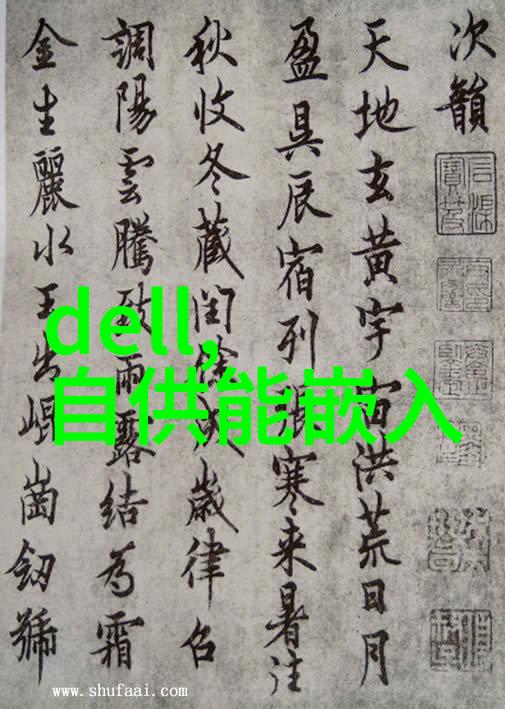 次韻
天地玄黄宇宙洪荒日月
盈昃辰宿列張寒来暑往
秋收冬藏閏餘成歲律召
調陽雲騰致雨露結為霜
金生麗水玉出崐崗劒號
dell,
自供能嵌入
www.shufaai.com